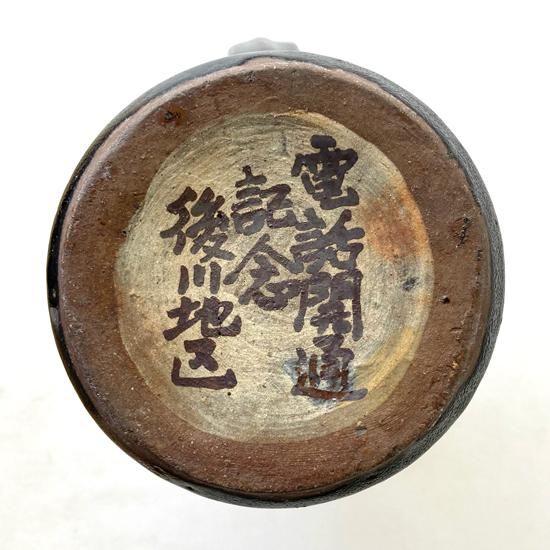 電話開通
記念
後川地区